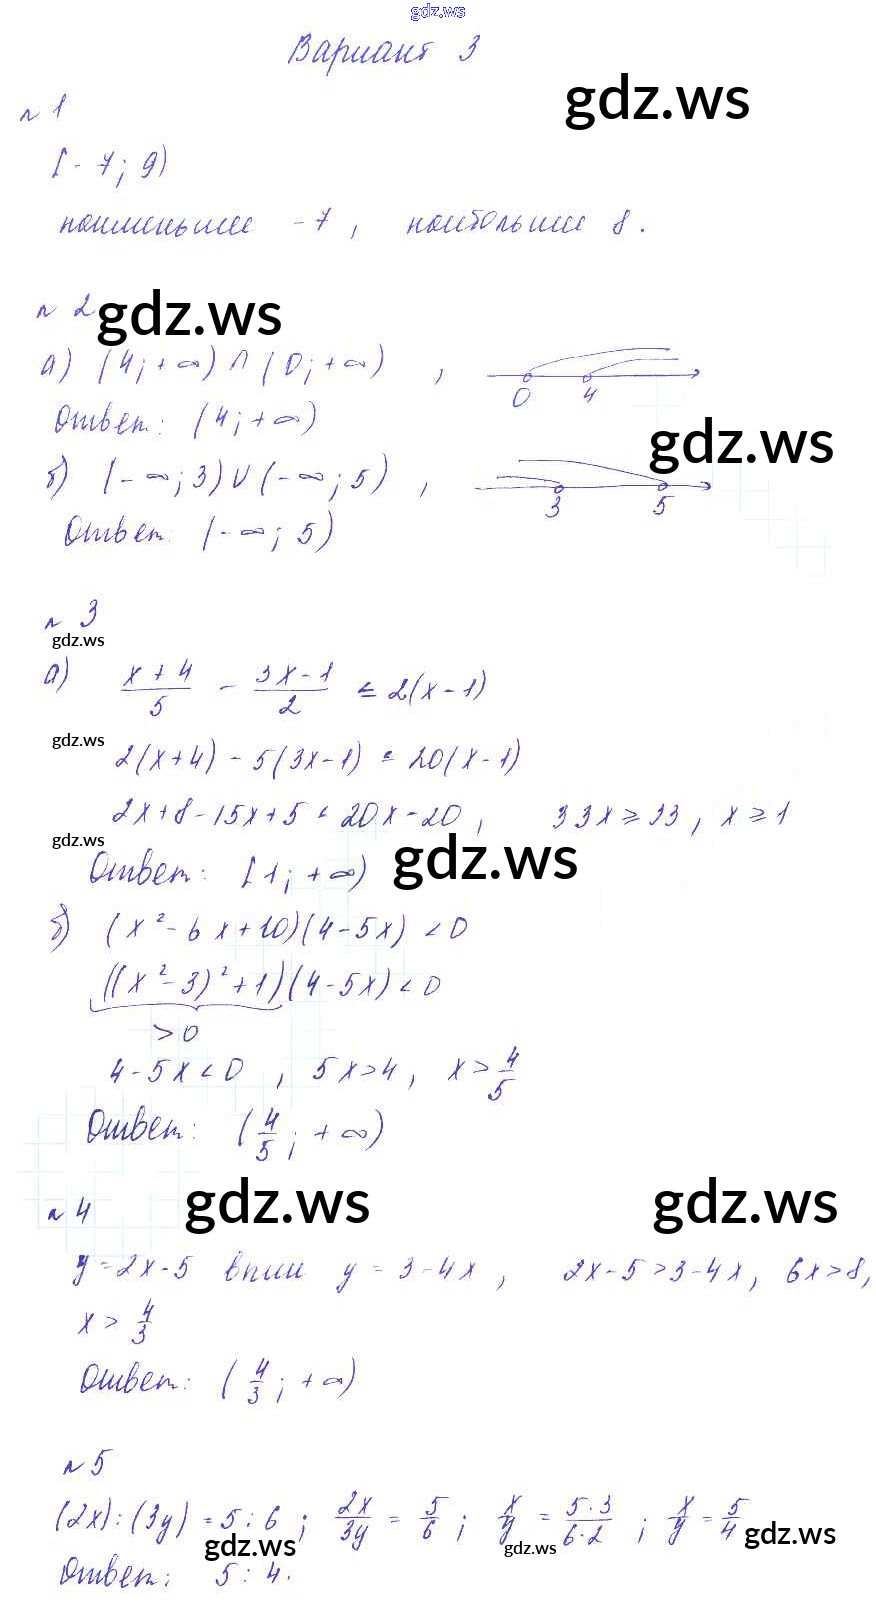 gdz.ws
Вариант 3
gdz.ws
№ 1
[-7; 9)
наименьшее -7, наибольшее 8.
№ 2 gdz.ws
а) (4; +∞) ∩ (0; +∞) ,
0 4
Ответ: (4; +∞)
gdz.ws
б) (-∞; 3) ∪ (-∞; 5) ,
3 5
Ответ: (-∞; 5)
№ 3
gdz.ws
а) (x+4)/5 - (3x-1)/2 ≤ 2(x-1)
gdz.ws
2(x+4) - 5(3x-1) ≤ 20(x-1)
2x+8-15x+5 ≤ 20x-20, 33x ≥ 33, x ≥ 1
gdz.ws
Ответ: [1; +∞) gdz.ws
б) (x²-6x+10)(4-5x) < 0
((x²-3)²+1)(4-5x) < 0
>0
4-5x < 0 , 5x > 4, x > 4/5
Ответ: (4/5; +∞)
gdz.ws gdz.ws
№ 4
y = 2x-5 выше y = 3-4x , 2x-5 > 3-4x, 6x > 8,
x > 4/3
Ответ: (4/3; +∞)
№ 5
(2x):(3y) = 5:6 ; 2x/3y = 5/6 ; x/y = 5·3/6·2 ; x/y = 5/4
gdz.ws gdz.ws gdz.ws
Ответ: 5:4.